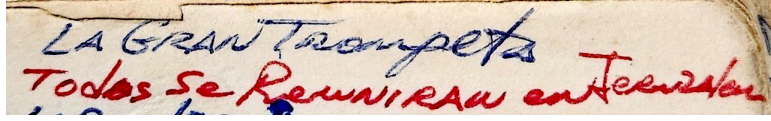 LA GRAN Trompeta
Todos Se Reuniran en Jerusalen